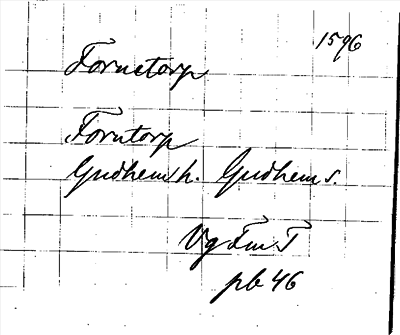 1596
Fornetorp
Forntorp
Gudhems h. Gudhem s.
Vg Fm T
pb 46